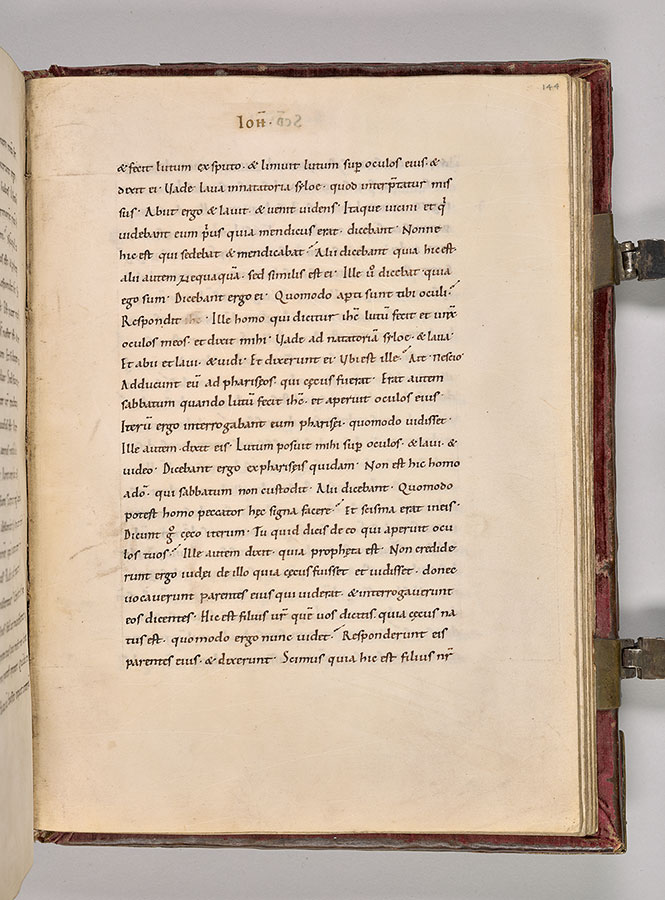 144
IOĦ·
& fecit lutum ex sputo· & liniuit lutum sup̄ oculos eius· &
dixit ei· Uade laua innatatoria syloe· quod interp̄tatur mis
sus· Abiit ergo & lauit· & uenit uidens· Itaque uicini et q̄
uidebant eum p̄us quia mendicus erat· dicebant· Nonne
hic est qui sedebat & mendicabat· Alii dicebant quia hic est·
alii autem nequaquā· sed similis est ei· Ille ū dicebat quia
ego sum· Dicebant ergo ei· Quomodo apti sunt tibi oculi·
Respondit· Ille homo qui dicitur ihc̄ lutū fecit et unx̄
oculos meos· et dixit mihi· Uade ad natatoriā syloe· & laua·
Et abii et laui· & uidi· Et dixerunt ei· Ubi est ille· Ait· nescio·
Adducunt eū ad phariseos· qui cęcus fuerat· Erat autem
sabbatum quando lutū fecit ihc̄· et aperuit oculos eius·
Iterū ergo interrogabant eum pharisei· quomodo uidisset·
Ille autem dixit eis· Lutum posuit mihi sup̄ oculos· & laui· &
uideo· Dicebant ergo ex phariseis quidam· Non est hic homo
a dō· qui sabbatum non custodit· Alii dicebant· Quomodo
potest homo peccator hęc signa facere· Et scisma erat in eis·
Dicunt g̊ cęco iterum· Tu quid dicis de eo qui aperuit ocu
los tuos· Ille autem dixit· quia propheta est· Non credide
runt ergo iudei de illo quia cęcus fuisset et uidisset· donec
uocauerunt parentes eius qui uiderat· & interrogauerunt
eos dicentes· Hic est filius ur̄ quē uos dictis· quia cęcus na
tus est· quomodo ergo nunc uidet· Responderunt eis
parentes eius· & dixerunt· Scimus quia hic est filius nr̄